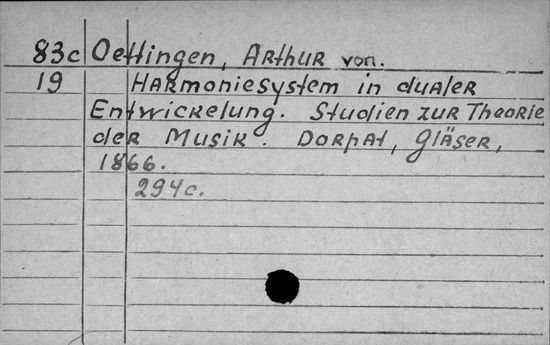 83c Oettingen, Arthur von.
19 Harmoniesystem in dualer
Entwickelung. Studien zur Theorie
der Musik. Dorpat, Gläser,
1866.
294c.